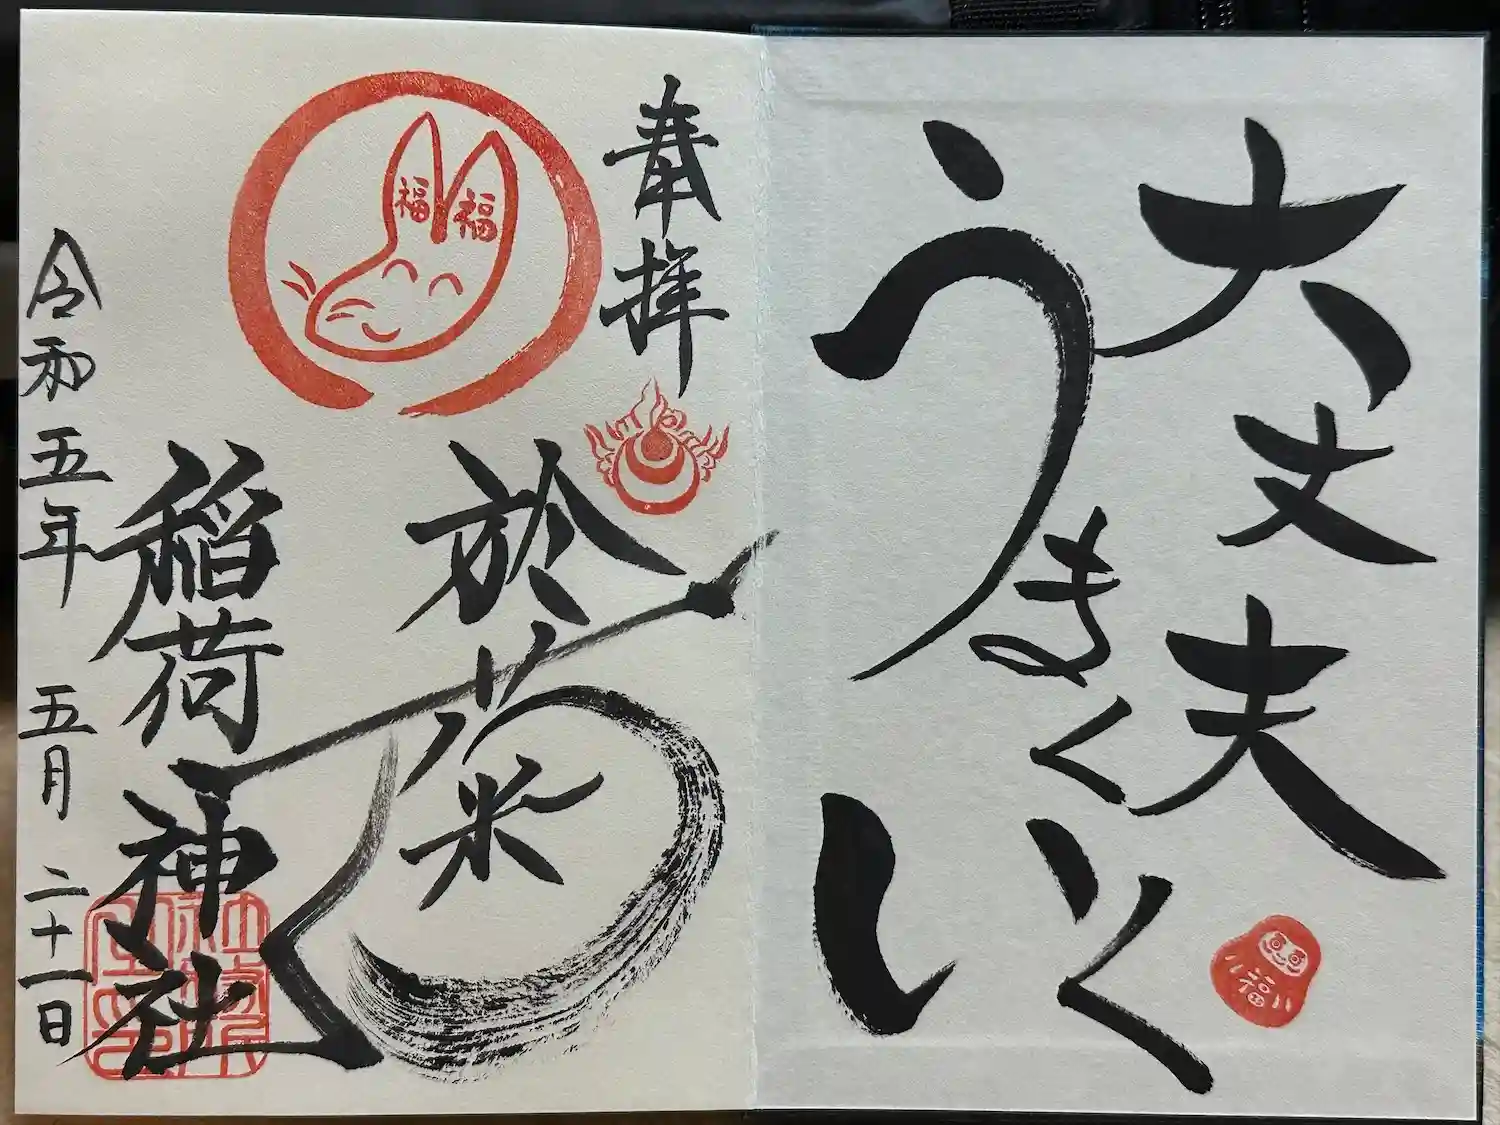 大丈夫
うまくいく
福
奉拝
福福
於菊
稲荷神社
令和五年 五月 二十一日